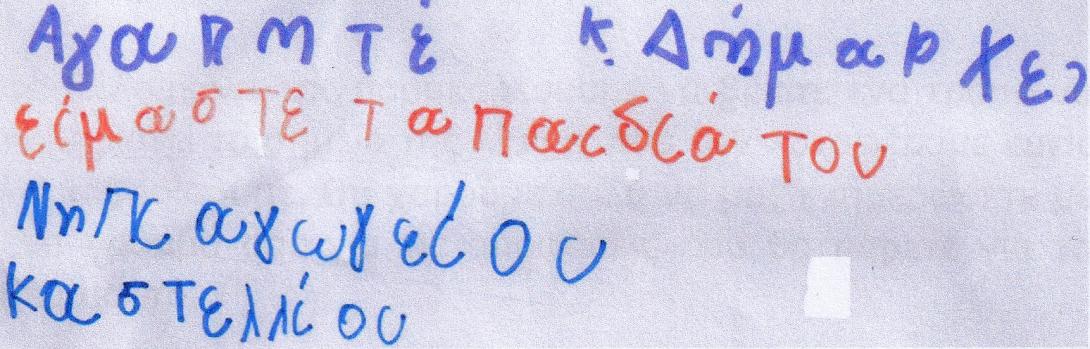 Αγαπητέ κ. Δήμαρχε,
είμαστε τα παιδιά του
Νηπιαγωγείου
Καστελλίου